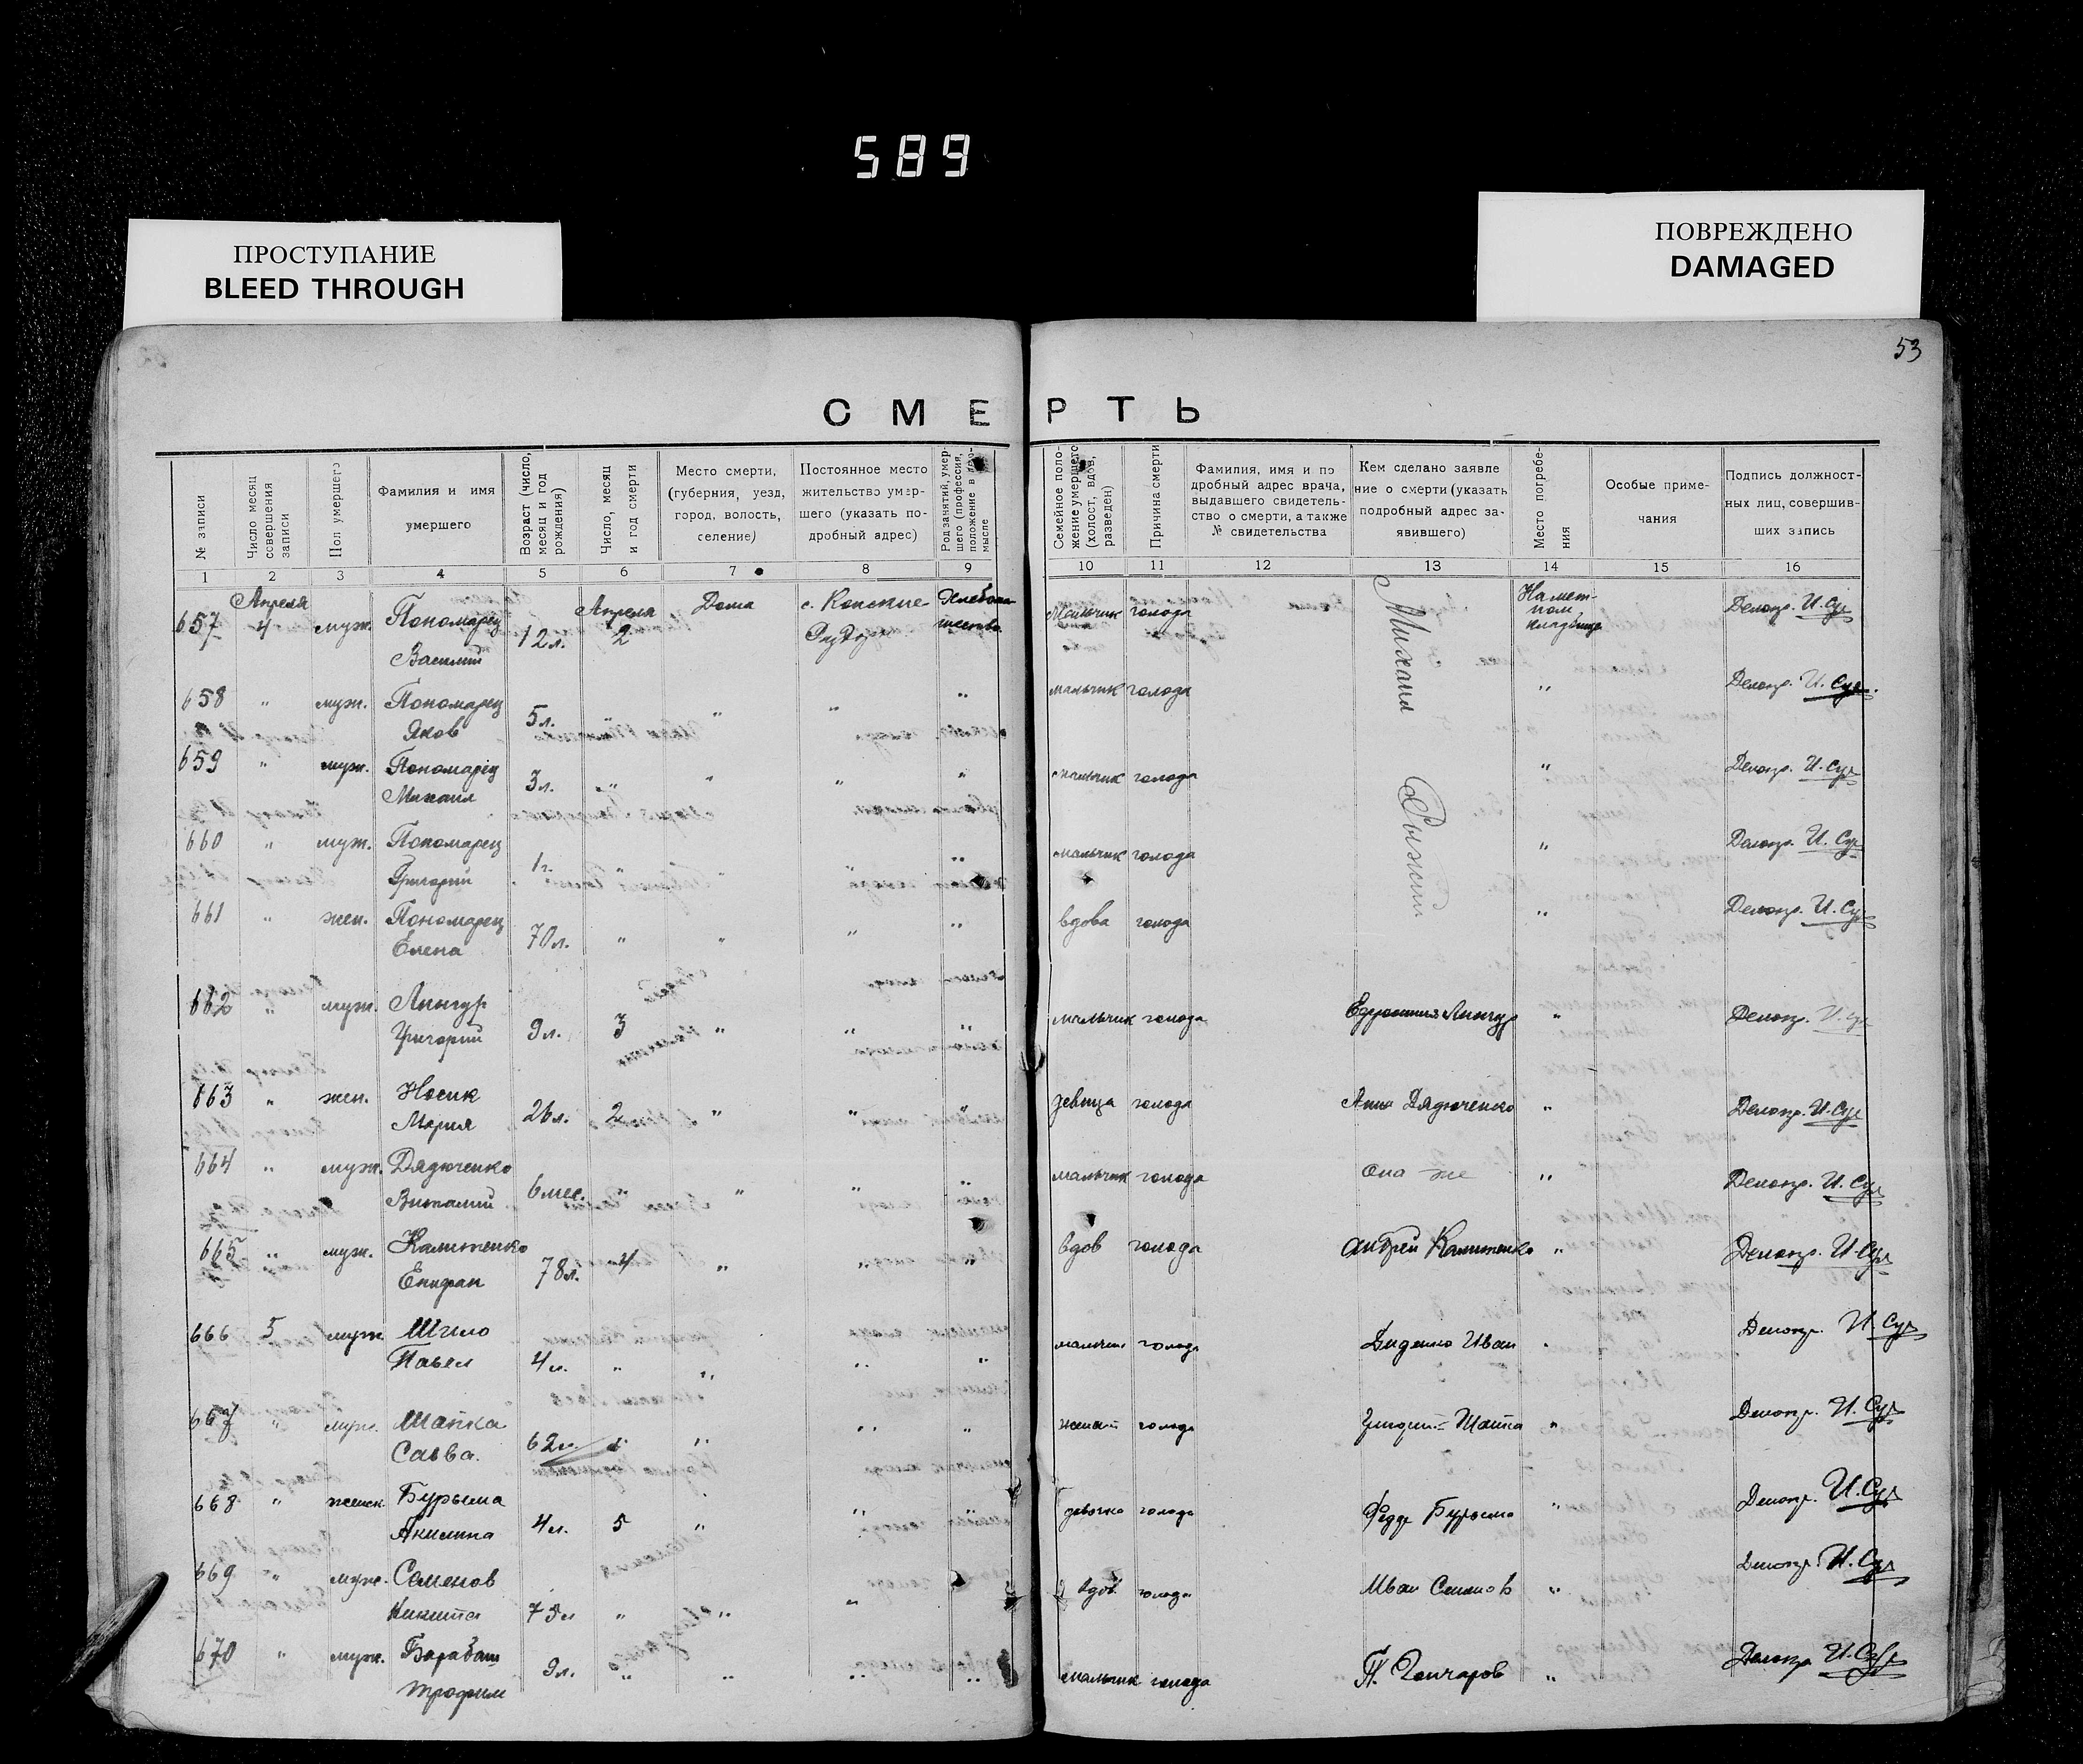 589
ПРОСТУПАНИЕ
BLEED THROUGH
ПОВРЕЖДЕНО
DAMAGED
53
СМЕРТЬ
№ записи
Число месяц совершения записи
Пол умершего
Фамилия и имя
умершего
Возраст (число, месяц и год рождения)
Число, месяц и год смерти
Место смерти,
(губерния, уезд,
город, волость,
селение)
Постоянное место
жительство умер-
шего (указать по-
дробный адрес)
Род занятий, умер-
шего (профессия,
положение в про-
мысле
Семейное поло-
жение умершего
(холост, вдов,
разведен)
Причина смерти
Фамилия, имя и по
дробный адрес врача,
выдавшего свидетель-
ство о смерти, а также
№ свидетельства
Кем сделано заявле
ние о смерти (указать
подробный адрес за-
явившего)
Место погребе-
ния
Особые приме-
чания
Подпись должност-
ных лиц, совершив-
ших запись
1 2 3 4 5 6 7 8 9 10 11 12 13 14 15 16
657 Апреля 4 муж. Пономарец Василий 12 л. Апреля 2 Дома с. мальчик голода Михаил Рыжий кладбище Делопр. И. Суд
658 " муж. Пономарец Яков 5 л. " " " " мальчик голода " Делопр. И. Суд
659 " муж. Пономарец Михаил 3 л. " " " " мальчик голода " Делопр. И. Суд
660 " муж. Пономарец Григорий 1 г. " " " " мальчик голода " Делопр. И. Суд
661 " жен. Пономарец Елена 70 л. " " " " вдова голода " Делопр. И. Суд
662 " муж. Григорий 9 л. 3 " " " мальчик голода " Делопр.
663 " жен. Носик Мария 26 л. 2 " " " девица голода Анна Дядюченко " Делопр. И. Суд
664 " муж. Дядюченко Виталий 6 мес. " " " " мальчик голода Она же " Делопр. И. Суд
665 " муж. Калитенко Епифан 78 л. 4 " " " вдов голода Андрей Калитенко " Делопр. И. Суд
666 5 муж. Шило Павел 4 л. " " " " мальчик голода Диденко Иван " Делопр. И. Суд
667 " муж. Шапка Савва. 62 л. " " " женат голода Шапка " Делопр. И. Суд
668 " женск. Бурыма Акилина 4 л. 5 " " девочка голода Бурыма " Делопр. И. Суд
669 " муж. Семенов Никита 75 л " " " вдов голода Иван Семенов " Делопр. И. Суд
670 " муж. Барабаш Трофим 9 л. " " " " мальчик голода П. Гончаров " Делопр. И. Суд